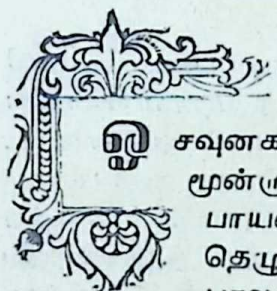 ஓ சவுனக
மூன்று
பாய
தெழு